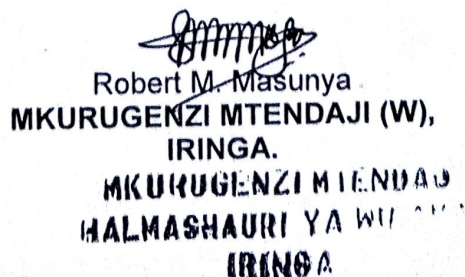 Robert M. Masunya
MKURUGENZI MTENDAJI (W),
IRINGA.
MKURUGENZI MTENDAJI
HALMASHAURI YA
IRINGA